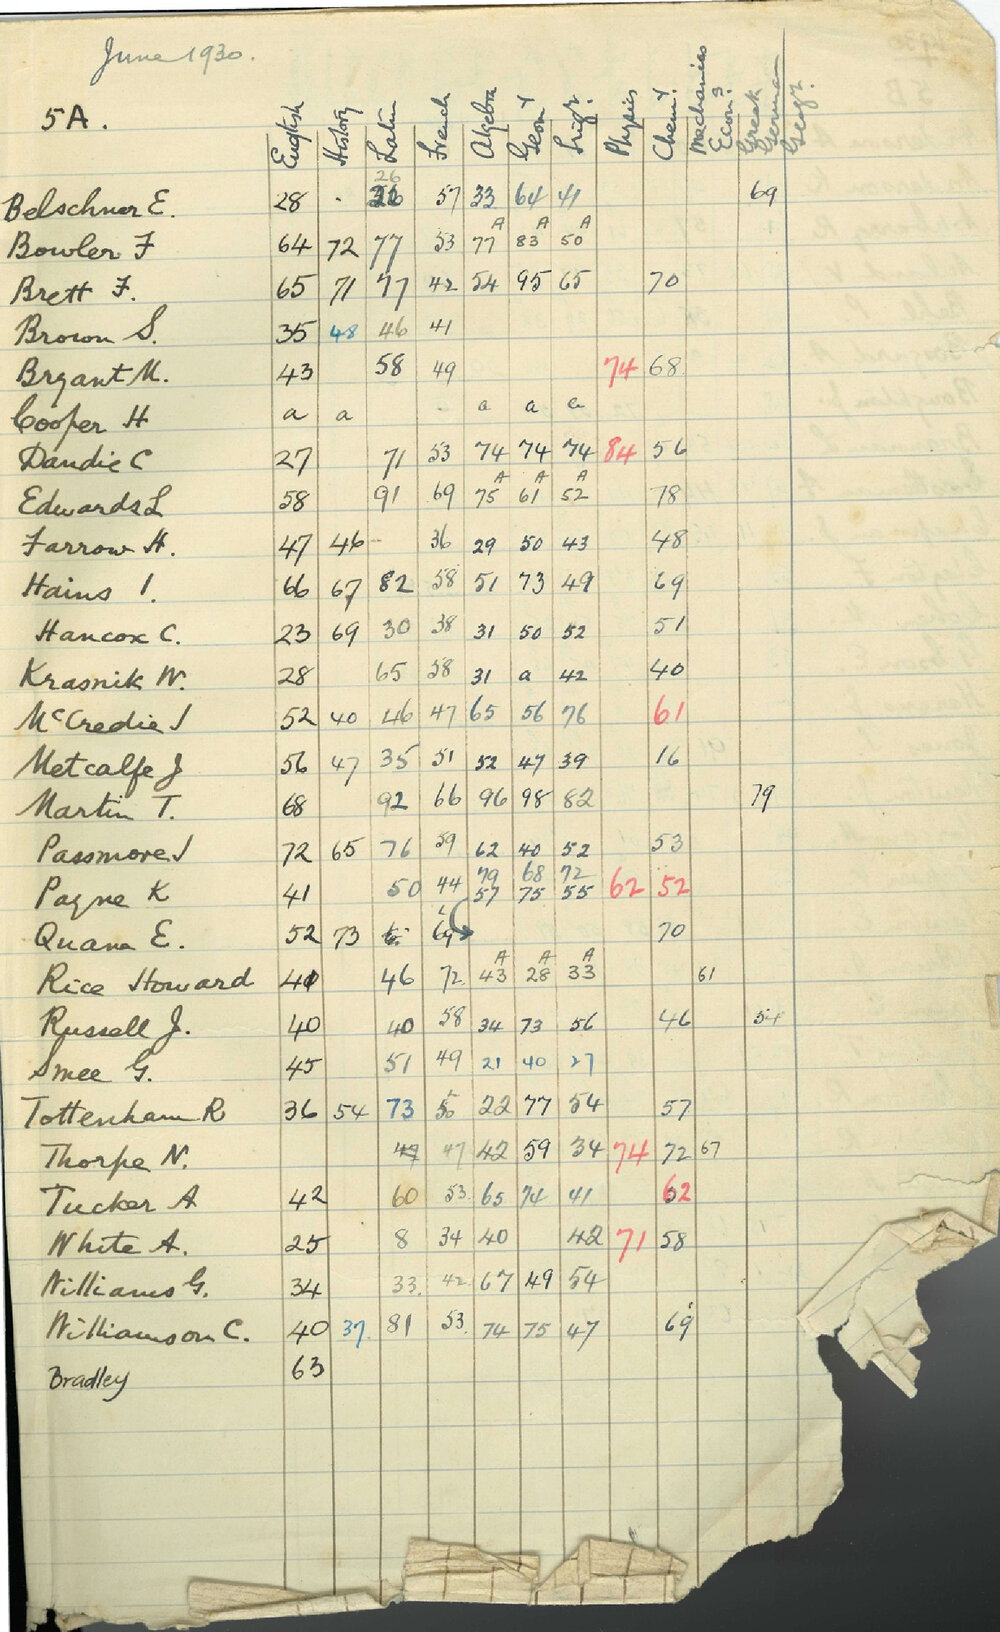 June 1930.
5A.
English History Latin French Algebra Geomy Trigr. Physics Chemy. Mechanics Econ.s Greek German Geogr.
26
Belschner E. 28 . 57 33 64 41 69
A A A
Bowler F 64 72 77 53 77 83 50
Brett F. 65 71 77 42 54 95 65 70
Brown S. 35 48 46 41
Bryant M. 43 58 49 74 68
Cooper H a a a a a
Dandie C 27 71 53 74 74 74 84 56
A A A
Edwards L 58 91 69 75 61 52 78
Farrow H. 47 46 - 36 29 50 43 48
Hains I. 66 67 82 58 51 73 49 69
Hancox C. 23 69 30 38 31 50 52 51
Krasnik W. 28 65 58 31 a 42 40
McCredie J 52 40 46 47 65 56 76 61
Metcalfe J 56 47 35 51 52 47 39 16
Martin T. 68 92 66 96 98 82 79
Passmore J 72 65 76 59 62 40 52 53
79 68 72
Payne K 41 50 44 57 75 55 62 52
Quana E. 52 73 69 70
A A A
Rice Howard 40 46 72 43 28 33 61
Russell J. 40 40 58 34 73 56 46 54
Smee G. 45 51 49 21 40 27
Tottenham R 36 54 73 22 77 54 57
Thorpe N. 47 47 42 59 34 74 72 67
Tucker A 42 60 53 65 74 41 62
White A. 25 8 34 40 42 71 58
Williams G. 34 33. 42 67 49 54
Williamson C. 40 37. 81 53. 74 75 47 69
Bradley 63